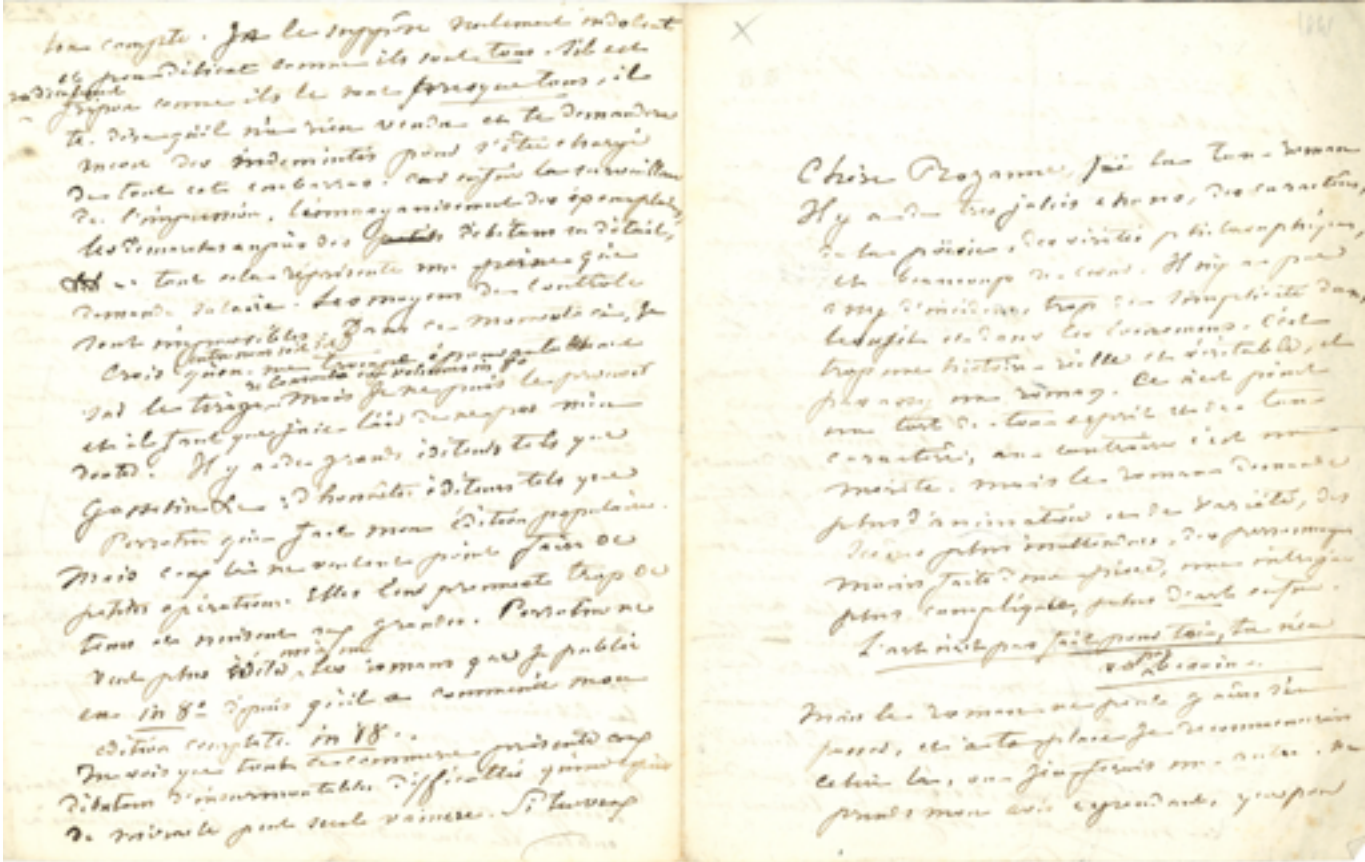 ton compte. Je le suppose seulement indolent
et peu délicat comme ils sont tous. S'il est
radicalement
fripon comme ils le sont presque tous, il
te dira qu'il n'a rien vendu et te demandera
encore des indemnités pour s'être chargé
de tout cet embarras. Car enfin la surveillance
de l'impression, l'emmagasinement des exemplaires,
les démarches auprès des débitans en détail,
tout cela représente une peine qui
demande salaire. Les moyens de contrôle
sont impossibles. Dans ce moment-ci, je
crois qu'on me trompe
sur le tirage. Mais je ne puis le prouver
et il faut que j'aie l'air de ne pas m'en
douter. Il y a de grands éditeurs tels que
Gosselin & d'honnêtes éditeurs tels que
Perrotin qui fait mon édition populaire.
Mais ceux-là ne veulent point faire de
petites opérations. Elles leur prennent trop de
tems et nuisent aux grandes. Perrotin ne
veut plus éditer même les romans que je publie
en in 8° depuis qu'il a commencé mon
édition complète in 18.
Tu vois que tout ce commerce présente aux
débutans d'insurmontables difficultés qu'une
de miracle peut seule vaincre. Si tu veux
1841
Chère Rozanne, j'ai lu ton roman
Il y a de très jolies choses, des caractères,
de la poësie, des vérités philosophiques,
et beaucoup de cœur. Il n'y a pas
assez d'incidens, trop de simplicité dans
le sujet et dans les évènemens. C'est
trop une histoire réelle et véritable, et
pas assez un roman. Ce n'est point
un tort de ton esprit et de ton
caractère, au contraire c'est un
mérite. Mais le roman demande
plus d'animation et de variété, des
scènes plus inattendues, des personnages
moins faits d'une pièce, une intrigue
plus compliquée, plus d'art enfin.
L'art n'est pas fait pour toi, tu n'en
as pas besoin.
Mais le roman ne peut guères s'en
passer, et à ta place je recommencerais
celui-là, ou j'en ferais un autre. Ne
prends mon avis cependant, que pour